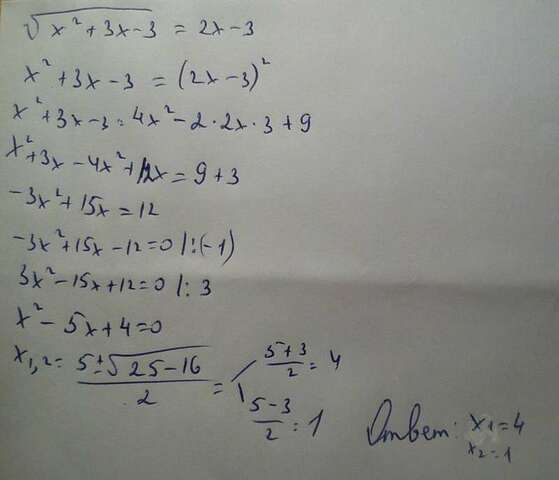 √(x² + 3x - 3) = 2x - 3
x² + 3x - 3 = (2x - 3)²
x² + 3x - 3 = 4x² - 2 · 2x · 3 + 9
x² + 3x - 4x² + 12x = 9 + 3
-3x² + 15x = 12
-3x² + 15x - 12 = 0 |:(-1)
3x² - 15x + 12 = 0 |: 3
x² - 5x + 4 = 0
x₁,₂ = (5 ± √(25 - 16))/2 = (5 + 3)/2 = 4
(5 - 3)/2 = 1
Ответ: x₁ = 4
x₂ = 1